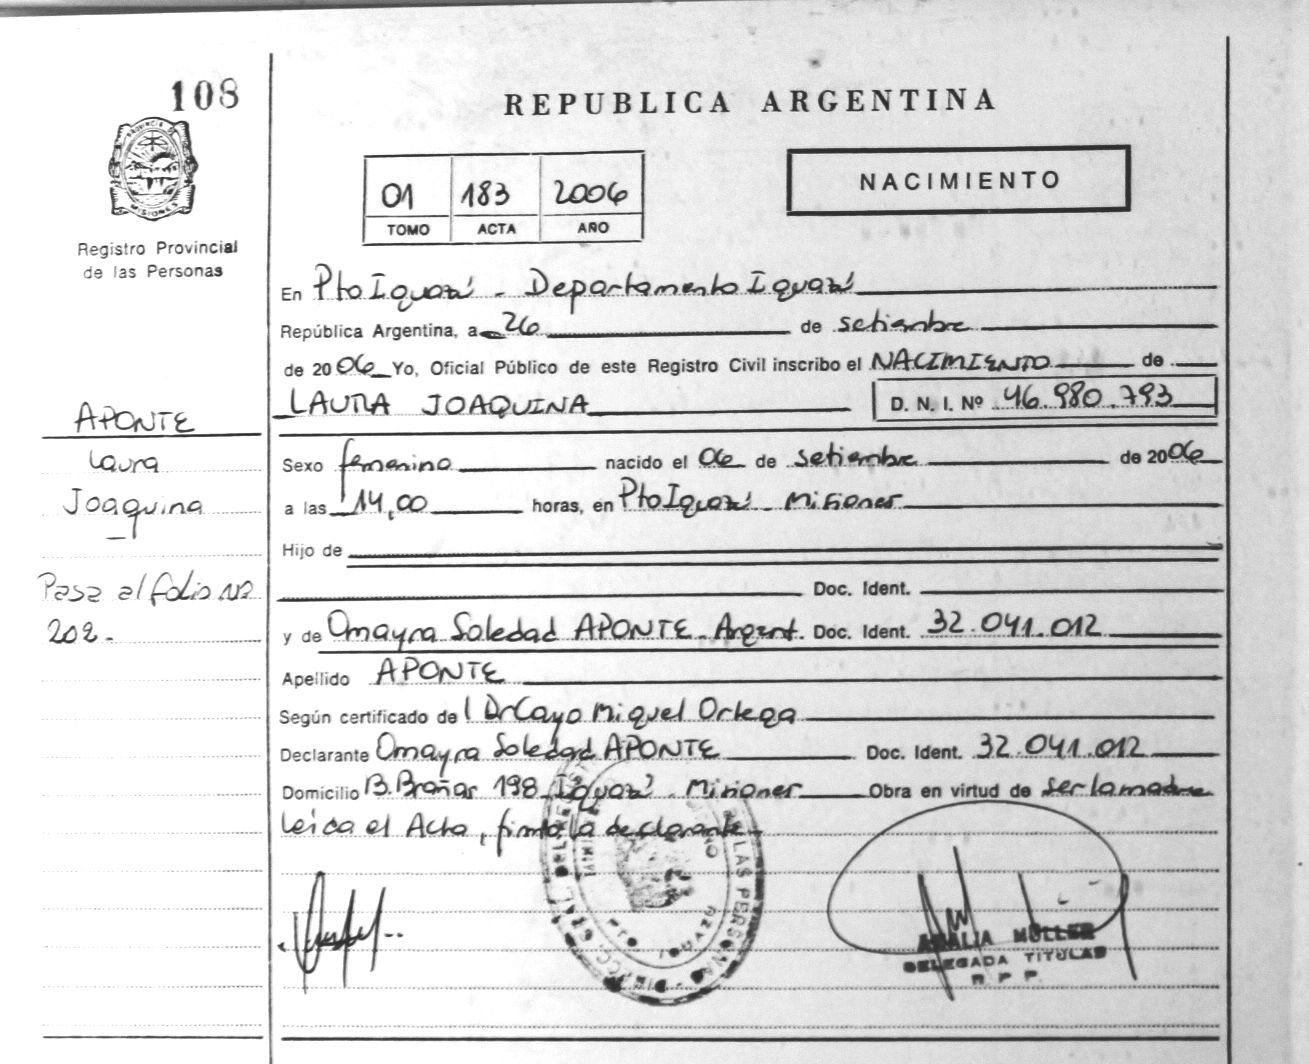 108
PROVINCIA DE
MISIONES
Registro Provincial
de las Personas
REPUBLICA ARGENTINA
01 183 2006
TOMO ACTA AÑO
NACIMIENTO
En Pto Iguazú - Departamento Iguazú
República Argentina, a 26 de setiembre
de 2006 Yo, Oficial Público de este Registro Civil inscribo el NACIMIENTO de
LAURA JOAQUINA D. N. I. Nº 46.980.793
APONTE
Laura
Joaquina
Pasa al folio Nº
202.-
Sexo femenino nacido el 06 de setiembre de 2006
a las 14,00 horas, en Pto Iguazú - Misiones
Hijo de
Doc. Ident.
y de Omayra Soledad APONTE - Argent. Doc. Ident. 32.041.012
Apellido APONTE
Según certificado del Dr Cayo Miguel Ortega
Declarante Omayra Soledad APONTE Doc. Ident. 32.041.012
Domicilio B. Brañas 198 Iguazú - Misiones Obra en virtud de ser la madre
Leída el Acta, firma la declarante-
DE LAS PERSONAS
PTO IGUAZU
AMALIA MÜLLER
DELEGADA TITULAR
R. P. P.